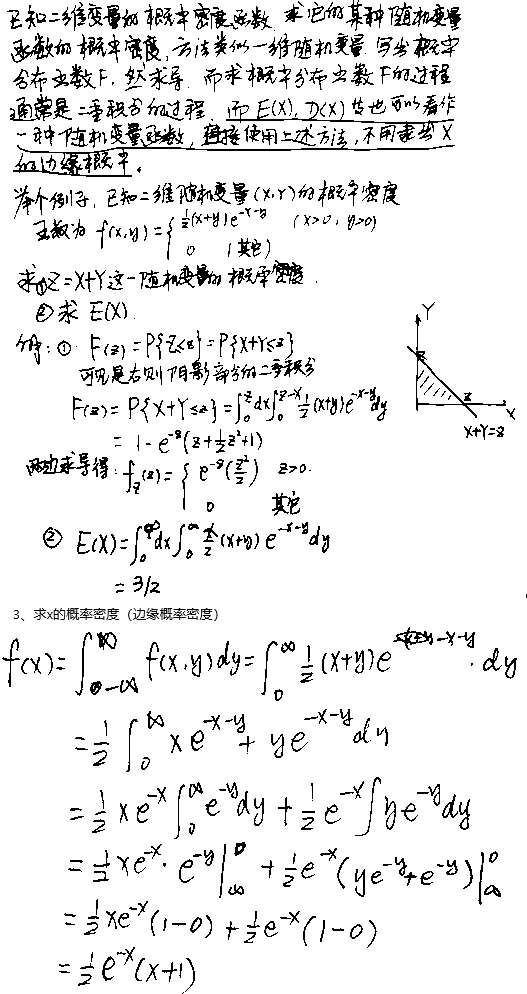 已知二维变量的概率密度函数 求它的某种随机变量
函数的概率密度, 方法类似一维随机变量 写出概率
分布函数F, 然求导 而求概率分布函数F的过程
通常是二重积分的过程. 而E(X), D(X)其也可以看作
一种随机变量函数, 直接使用上述方法, 不用求出X
的边缘概率.
举个例子, 已知二维随机变量(X,Y)的概率密度
函数为 f(x,y)={ ½(x+y)e^{-x-y} (x>0, y>0)
0 (其它)
求①Z=X+Y这一随机变量的概率密度.
②求 E(X).
解: ① F(z)=P{Z≤z}=P{X+Y≤z}
可见是右则阴影部分的二重积分
F(z)=P{X+Y≤z}=∫₀^z dx∫₀^{z-x} ½(x+y)e^{-x-y}dy
= 1-e^{-z}(z+½z²+1)
两边求导得: f_Z(z)={ e^{-z}(z²/2) z>0.
0 其它
Y
z
z
X
X+Y=z
② E(X)=∫₀^∞ dx∫₀^∞ x/2 (x+y) e^{-x-y}dy
= 3/2
3、求x的概率密度（边缘概率密度）
f(x)=∫_{-∞}^{∞} f(x,y)dy=∫₀^∞ ½(x+y)e^{-x-y}·dy
=½∫₀^∞ xe^{-x-y}+ye^{-x-y}dy
=½xe^{-x}∫₀^∞ e^{-y}dy+½e^{-x}∫ye^{-y}dy
=½xe^{-x}·e^{-y}|_∞^0 +½e^{-x}(ye^{-y}+e^{-y})|_∞^0
=½xe^{-x}(1-0)+½e^{-x}(1-0)
=½e^{-x}(x+1)